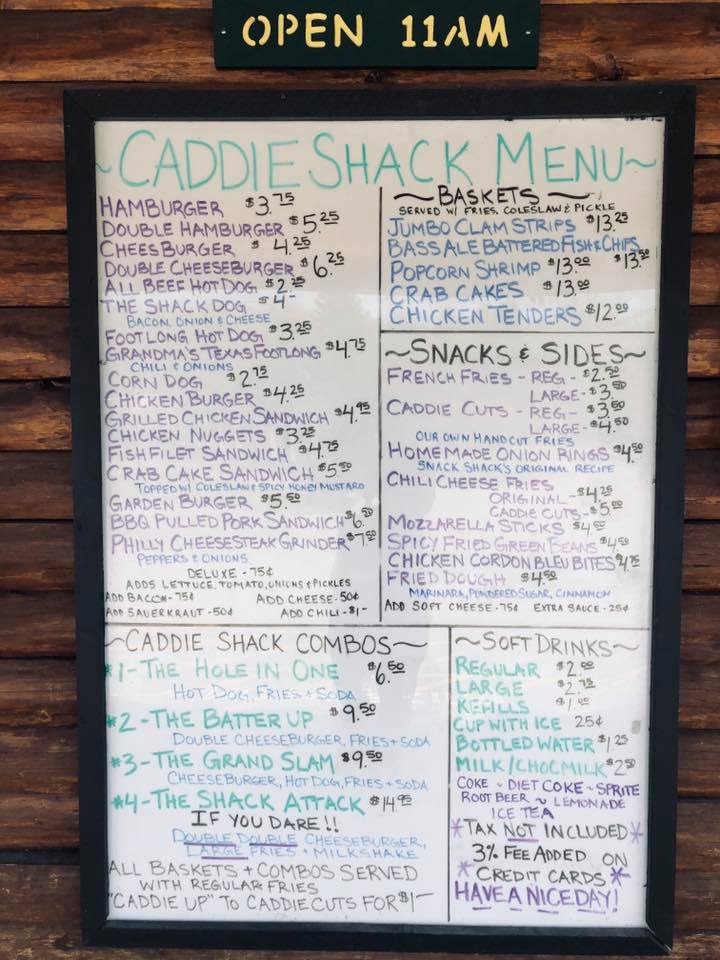 OPEN 11AM
~CADDIE SHACK MENU~
HAMBURGER $3.75
DOUBLE HAMBURGER $5.25
CHEESBURGER $4.25
DOUBLE CHEESEBURGER $6.25
ALL BEEF HOT DOG $2.25
THE SHACK DOG $4-
BACON, ONION & CHEESE
FOOTLONG HOT DOG $3.25
GRANDMA'S TEXAS FOOTLONG $4.75
CHILI & ONIONS
CORN DOG $2.75
CHICKEN BURGER $4.25
GRILLED CHICKEN SANDWICH $4.95
CHICKEN NUGGETS $3.25
FISH FILET SANDWICH $4.75
CRAB CAKE SANDWICH $5.50
TOPPED W/ COLESLAW & SPICY HONEY MUSTARD
GARDEN BURGER $5.50
BBQ PULLED PORK SANDWICH $6.50
PHILLY CHEESESTEAK GRINDER $7.50
PEPPERS & ONIONS
DELUXE - 75¢
ADDS LETTUCE, TOMATO, ONIONS & PICKLES
ADD BACON - 75¢ ADD CHEESE - 50¢
ADD SAUERKRAUT - 50¢ ADD CHILI - $1-
~BASKETS~
SERVED W/ FRIES, COLESLAW & PICKLE
JUMBO CLAM STRIPS $13.25
BASS ALE BATTERED FISH & CHIPS $13.50
POPCORN SHRIMP $13.00
CRAB CAKES $13.00
CHICKEN TENDERS $12.00
~SNACKS & SIDES~
FRENCH FRIES - REG - $2.50
LARGE - $3.50
CADDIE CUTS - REG - $3.50
LARGE - $4.50
OUR OWN HANDCUT FRIES
HOMEMADE ONION RINGS $4.50
SNACK SHACK'S ORIGINAL RECIPE
CHILI CHEESE FRIES
ORIGINAL - $4.25
CADDIE CUTS - $5.00
MOZZARELLA STICKS $4.50
SPICY FRIED GREEN BEANS $4.50
CHICKEN CORDON BLEU BITES $4.75
FRIED DOUGH $4.50
MARINARA, POWDERED SUGAR, CINNAMON
ADD SOFT CHEESE - 75¢ EXTRA SAUCE - 25¢
~CADDIE SHACK COMBOS~
#1 - THE HOLE IN ONE $6.50
HOT DOG, FRIES + SODA
#2 - THE BATTER UP $9.50
DOUBLE CHEESEBURGER, FRIES + SODA
#3 - THE GRAND SLAM $9.50
CHEESEBURGER, HOT DOG, FRIES + SODA
#4 - THE SHACK ATTACK $14.95
IF YOU DARE!!
DOUBLE DOUBLE CHEESEBURGER,
LARGE FRIES + MILKSHAKE
ALL BASKETS + COMBOS SERVED
WITH REGULAR FRIES
"CADDIE UP" TO CADDIE CUTS FOR $1-
~SOFT DRINKS~
REGULAR $2.00
LARGE $2.75
REFILLS $1.00
CUP WITH ICE 25¢
BOTTLED WATER $1.25
MILK/CHOC MILK $2.50
COKE ~ DIET COKE ~ SPRITE
ROOT BEER ~ LEMONADE
ICE TEA
*TAX NOT INCLUDED*
3% FEE ADDED ON
*CREDIT CARDS*
HAVE A NICE DAY!